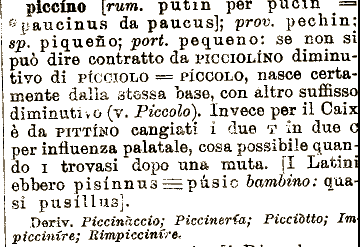 piccíno [rum. putin per pucin =
*paucinus da paucus]; prov. pechin;
sp. piqueño; port. pequeno: se non si
può dire contratto da PICCIOLÍNO diminu-
tivo di PÍCCIOLO = PÍCCOLO, nasce certa-
mente dalla stessa base, con altro suffisso
diminutivo (v. Piccolo). Invece per il Caix
è da PITTÍNO cangiati i due T in due c
per influenza palatale, cosa possibile quan-
do i trovasi dopo una muta. [I Latini
ebbero pisínnus = púsic bambino: qua-
si pusíllus].
Deriv. Piccinàccio; Piccinería; Picciòtto; Im-
picciníre; Rimpicciníre.